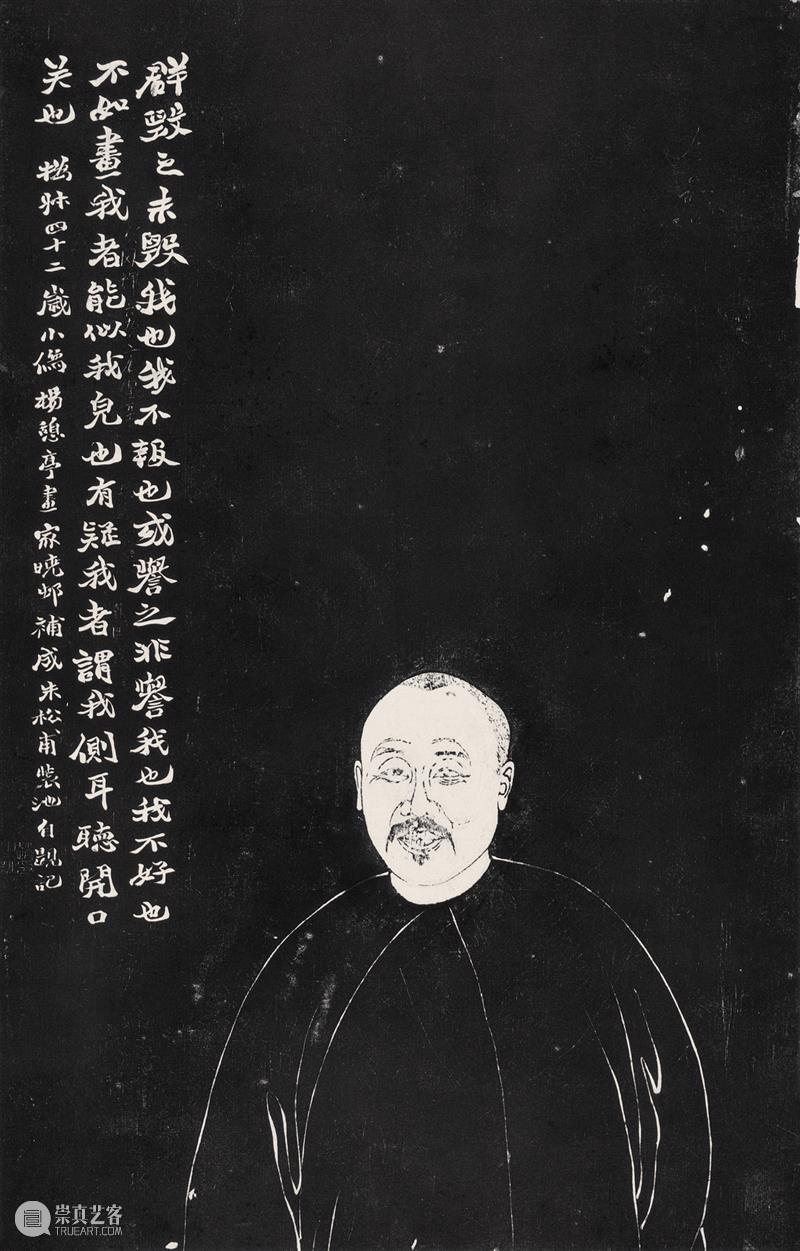 群毁之未毁我也我不報也或譽之非譽我也我不好也
不如畫我者能似我皃也有疑我者謂我側耳聽開口
关也 撝叔四十二歲小像楊憩亭畫家曉邨補成朱松甫裝池自題記
崇真艺客
TRUEART.COM